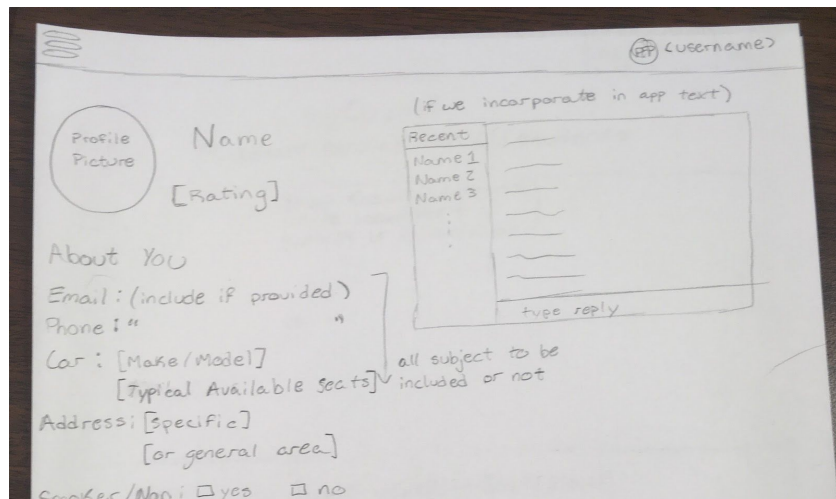 PFP <username>
(if we incorporate in app text)
Profile
Picture
Name
[Rating]
Recent
Name 1
Name 2
Name 3
type reply
About You
Email: (include if provided)
Phone: " "
Car: [Make/Model]
[Typical Available Seats]
all subject to be
included or not
Address: [Specific]
[or general area]
Smoker/Non: yes no